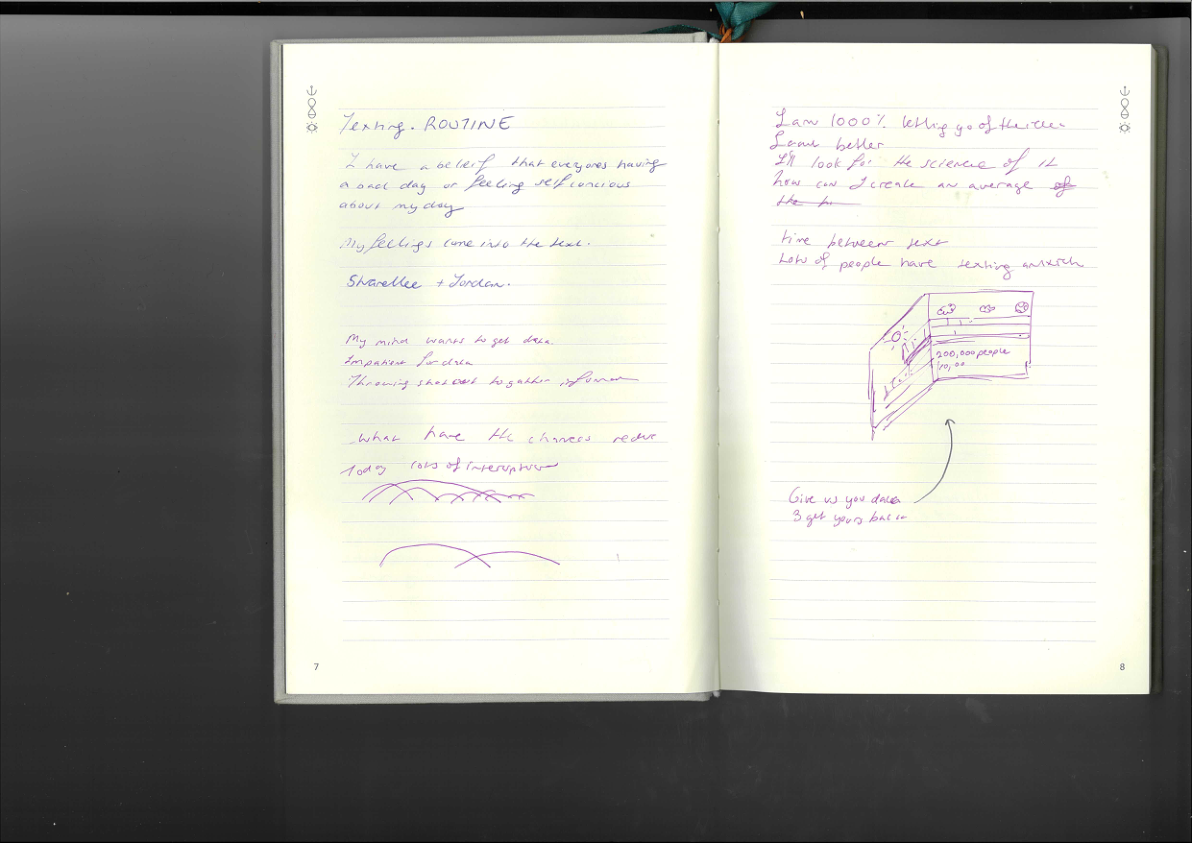 Texting. ROUTINE
I have a beleif that everyones having
a bad day or feeling self concious
about my day
My feelings come into the text.
+ Jordan.
My mind wants to get data.
Impatient for data
Throwing together
What have the
Today lots of
7
I am 1000% letting go of the
better
I'll look for the science of it
how can I create an average of
the
time between text
Lots of people have texting
200,000 people
10,00
Give us you data
3 get yours back
8